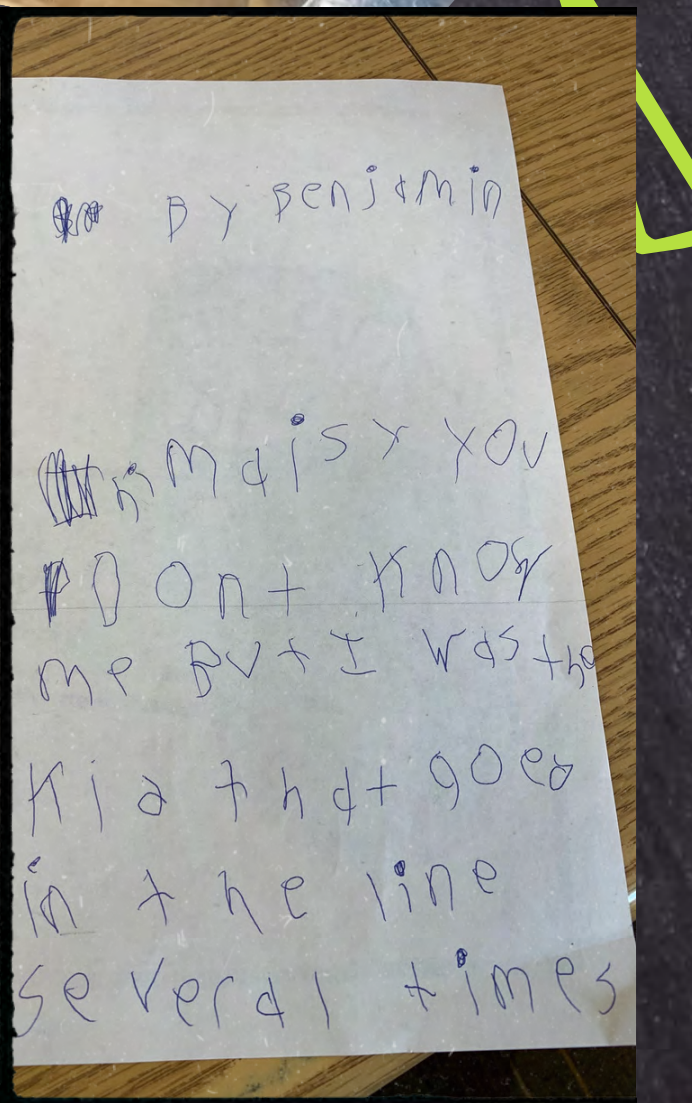 BY Benjamin
hi Maisy YOU
DOnt Know
me BUt I Was the
Kid that goed
in the line
several times